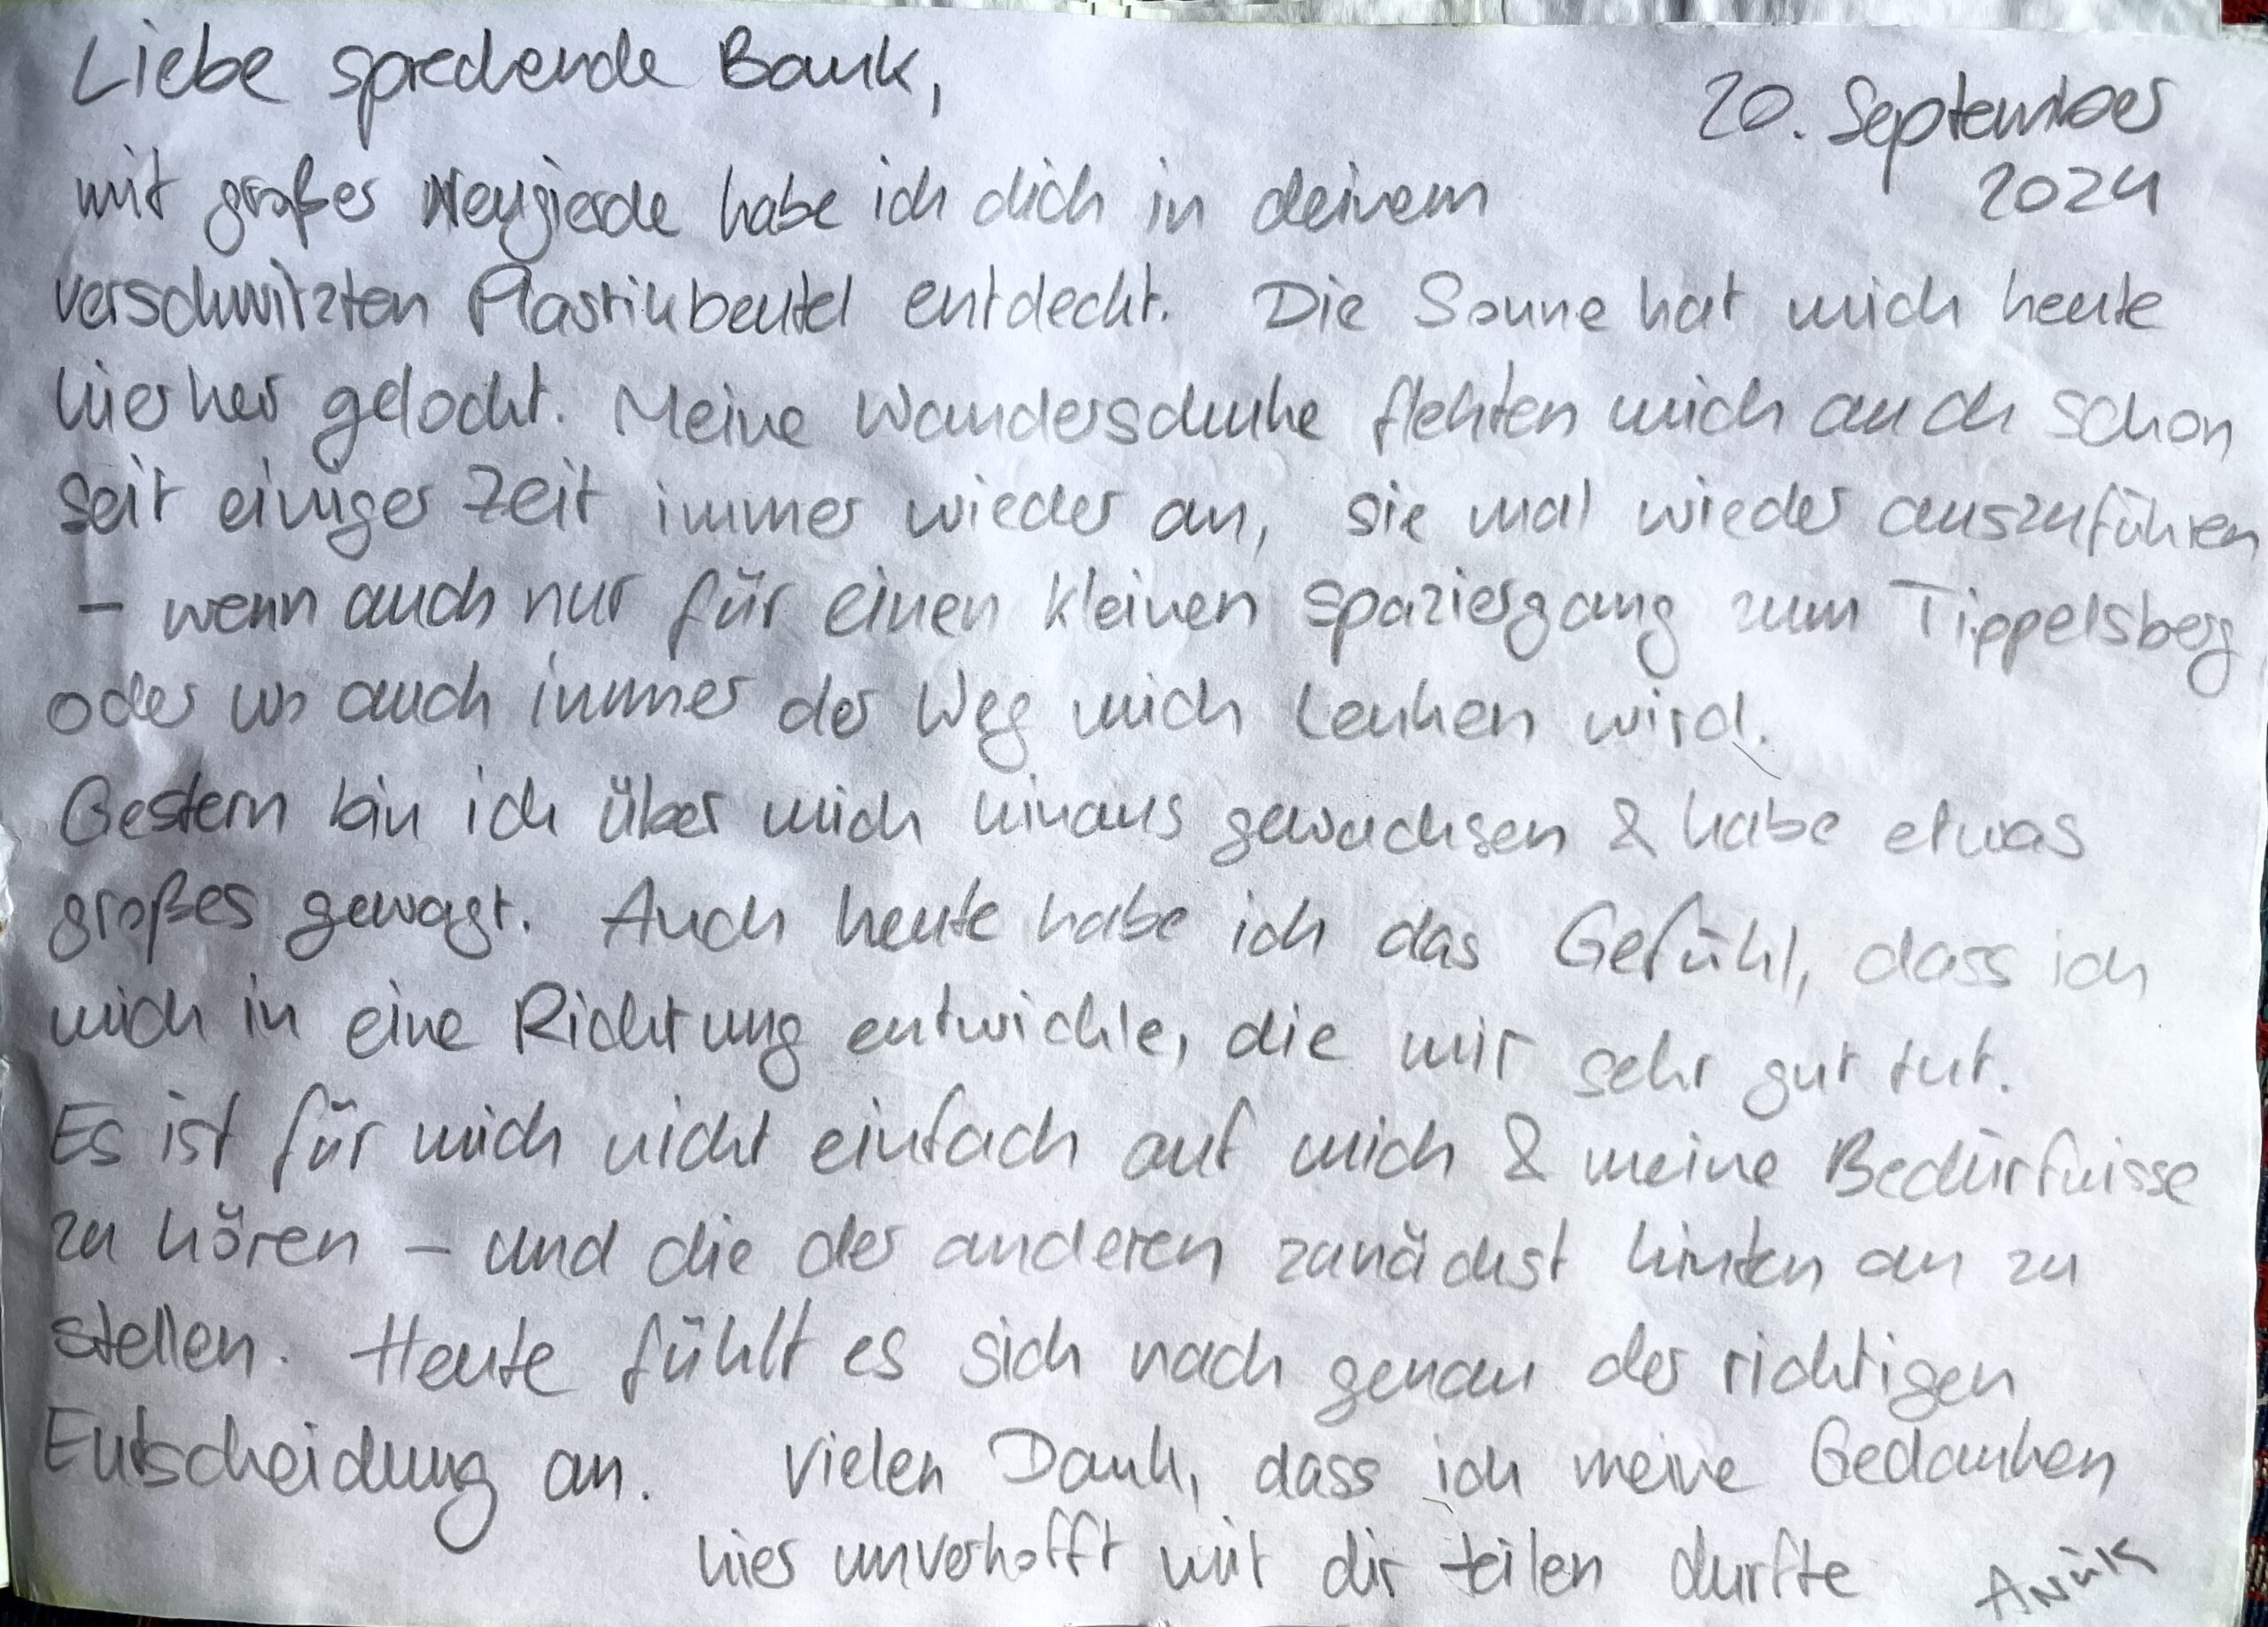 Liebe sprechende Bank,
20. September
2024
mit großer Neugierde habe ich dich in deinem
verschwitzten Plastikbeutel entdeckt. Die Sonne hat mich heute
hierher gelockt. Meine Wanderschuhe flehten mich auch schon
seit einiger Zeit immer wieder an, sie mal wieder auszuführen
– wenn auch nur für einen kleinen spaziergang zum Tippelsberg
oder wo auch immer der Weg mich Lenken wird.
Gestern bin ich über mich hinaus gewachsen & habe etwas
großes gewagt. Auch heute habe ich das Gefühl, dass ich
mich in eine Richtung entwickle, die mir sehr gut tut.
Es ist für mich nicht einfach auf mich & meine Bedürfnisse
zu hören – und die der anderen zunächst hinten an zu
stellen. Heute fühlt es sich nach genau der richtigen
Entscheidung an. Vielen Dank, dass ich meine Gedanken
hier unverhofft mit dir teilen durfte